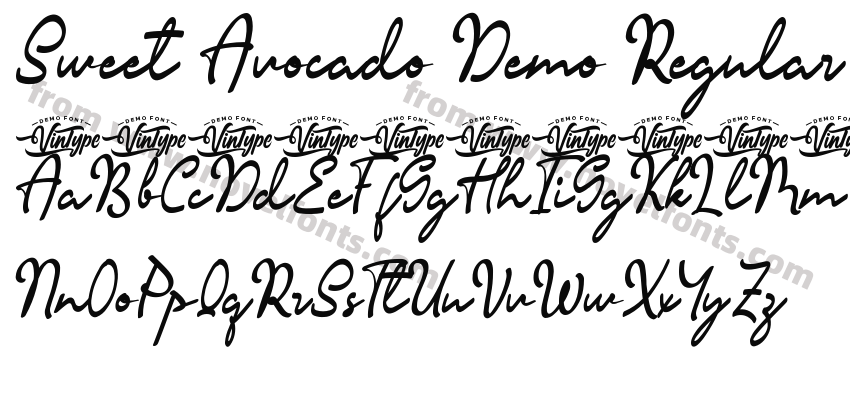 Sweet Avocado Demo Regular
DEMO FONT VinType DEMO FONT VinType DEMO FONT VinType DEMO FONT VinType DEMO FONT VinType DEMO FONT VinType DEMO FONT VinType DEMO FONT VinType DEMO FONT VinType DEMO FO Vin
AaBbCcDdEeFfGgHhIiSgKkLlMm
NnOoPpQqRrSsTtUuVvWwXxYyZz
from www.novelfonts.com
from www.novelfonts.com